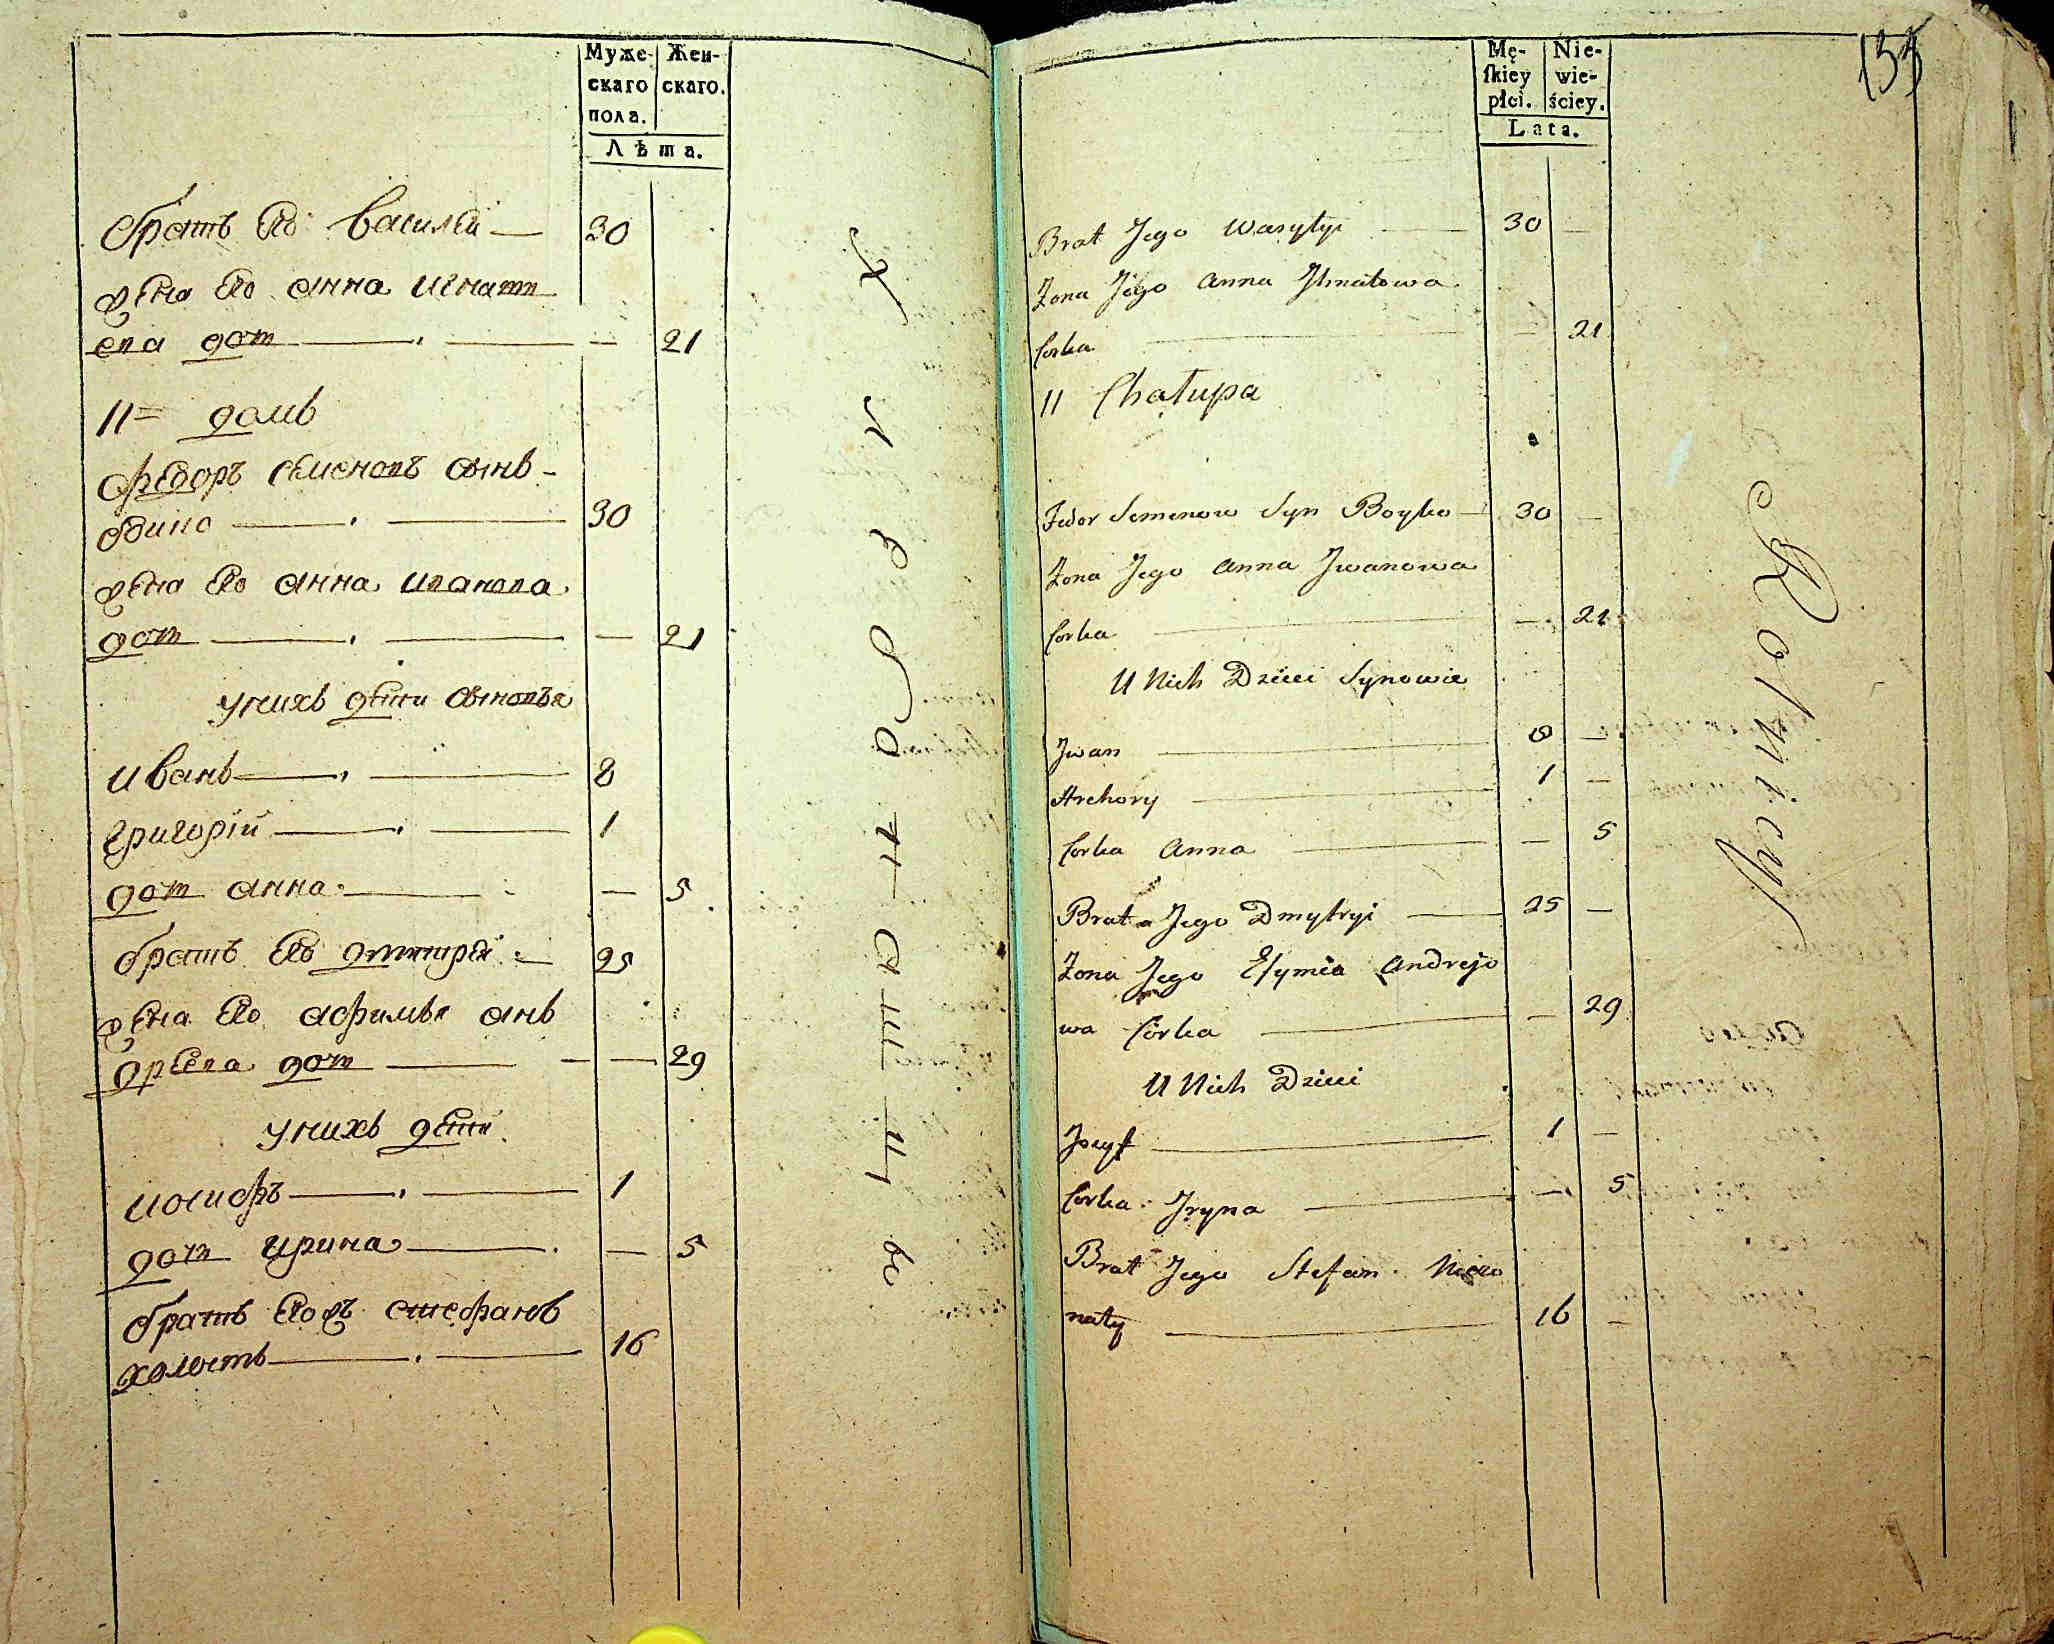 Муже-
скаго
пола.
Жен-
скаго.
Лѣта.
братъ его василей — 30
жена его анна игнатт
ева доч — — 21
11= домъ
федоръ семеновъ сынъ -
— 30
жена его анна иванова
доч — — 21
унихъ дети сыновья
иванъ — 8
григорій — 1
доч анна — — 5
братъ его дмитрей — 25
жена его афимья анъ
дреева доч — — 29
унихъ дети
иосифъ — 1
доч ирина — — 5
братъ его жъ стефанъ
холостъ — 16
Хлебопашцы
153
Mę-
skiey
płci.
Nie-
wie-
ściey.
Lata.
Brat Jego Wasylyi — 30 —
Żona Jego Anna Ihnatowa
Corka — — 21
11 Chałupa
Fedor Semenow Syn Boyko — 30 —
Żona Jego Anna Jwanowa
Corka — — 21
U Nich Dzieci Synowie
Jwan — 8 —
Hrehory — 1 —
Corka Anna — — 5
Brat Jego Dmytryi — 25 —
Żona Jego Efymia Andrejo
wa Córka — — 29
U Nich Dzieci
Jozyf — 1 —
Corka Jryna — — 5
Brat Jego Stefan Nieżo
naty — 16 —
Rolnicy